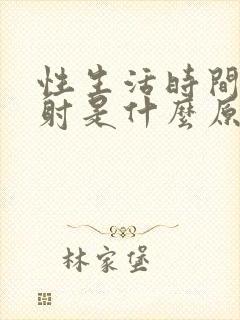 性生活時間
射是什麼原
林家堡